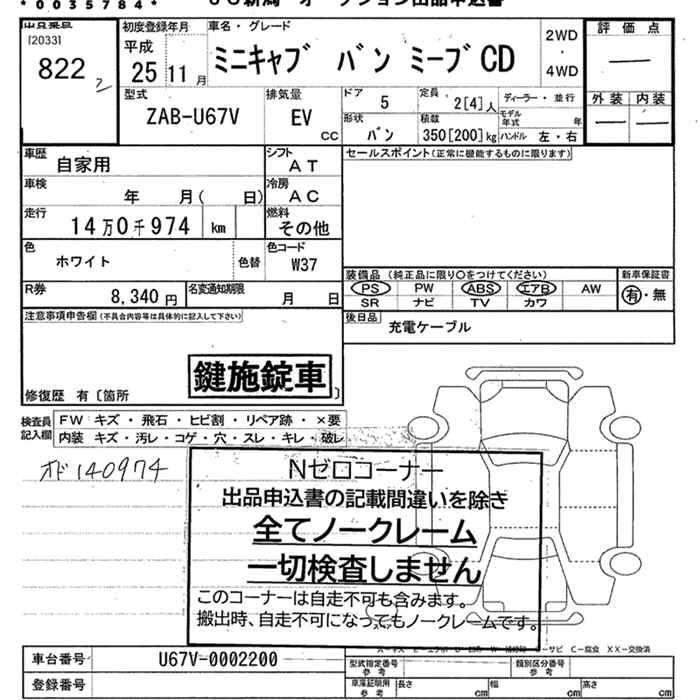 *0035784*
出品業品
[2033]
822 2
初度登録年月
平成
25 11 月
車名・グレード
ミニキャブ バン ミーブCD
2WD
・
4WD
評価点
—
外装 内装
— —
型式
ZAB-U67V
排気量
EV
CC
ドア
5
定員
2[4]人
ディーラー・並行
形状
バン
積載
350[200]kg
モデル年式 年
ハンドル 左・右
車歴
自家用
シフト
AT
セールスポイント(正常に機能するものに限ります)
車検
年 月( 日)
冷房
AC
走行
14万0千974 km
燃料
その他
色
ホワイト
色替
色コード
W37
装備品(純正品に限り○をつけてください)
新車保証書
PS PW ABS エアB AW
SR ナビ TV カワ
有・無
R券
8,340円
名変通知期限
月 日
後日品
充電ケーブル
注意事項申告欄(不具合内容等は具体的に記入して下さい)
鍵施錠車
修復歴 有〔箇所 〕
検査員記入欄
FW キズ・飛石・ヒビ割・リペア跡・×要
内装 キズ・汚レ・コゲ・穴・スレ・キレ・破レ
オド140974
Nゼロコーナー
出品申込書の記載間違いを除き
全てノークレーム
一切検査しません
このコーナーは自走不可も含みます。
搬出時、自走不可になってもノークレームです。
C－腐食 XX－交換済
車台番号
U67V-0002200
型式指定番号
参考
類別区分番号
参考
登録番号
車庫証明用
参考
長さ cm
幅 cm
高さ cm